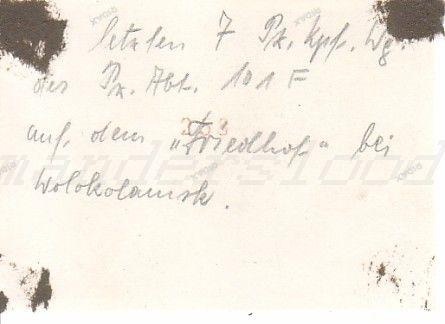 letzten 7 Pz. Kpf. Wg.
der Pz. Abt. 101 F
auf dem „Friedhof“ bei
Wolokolamsk.